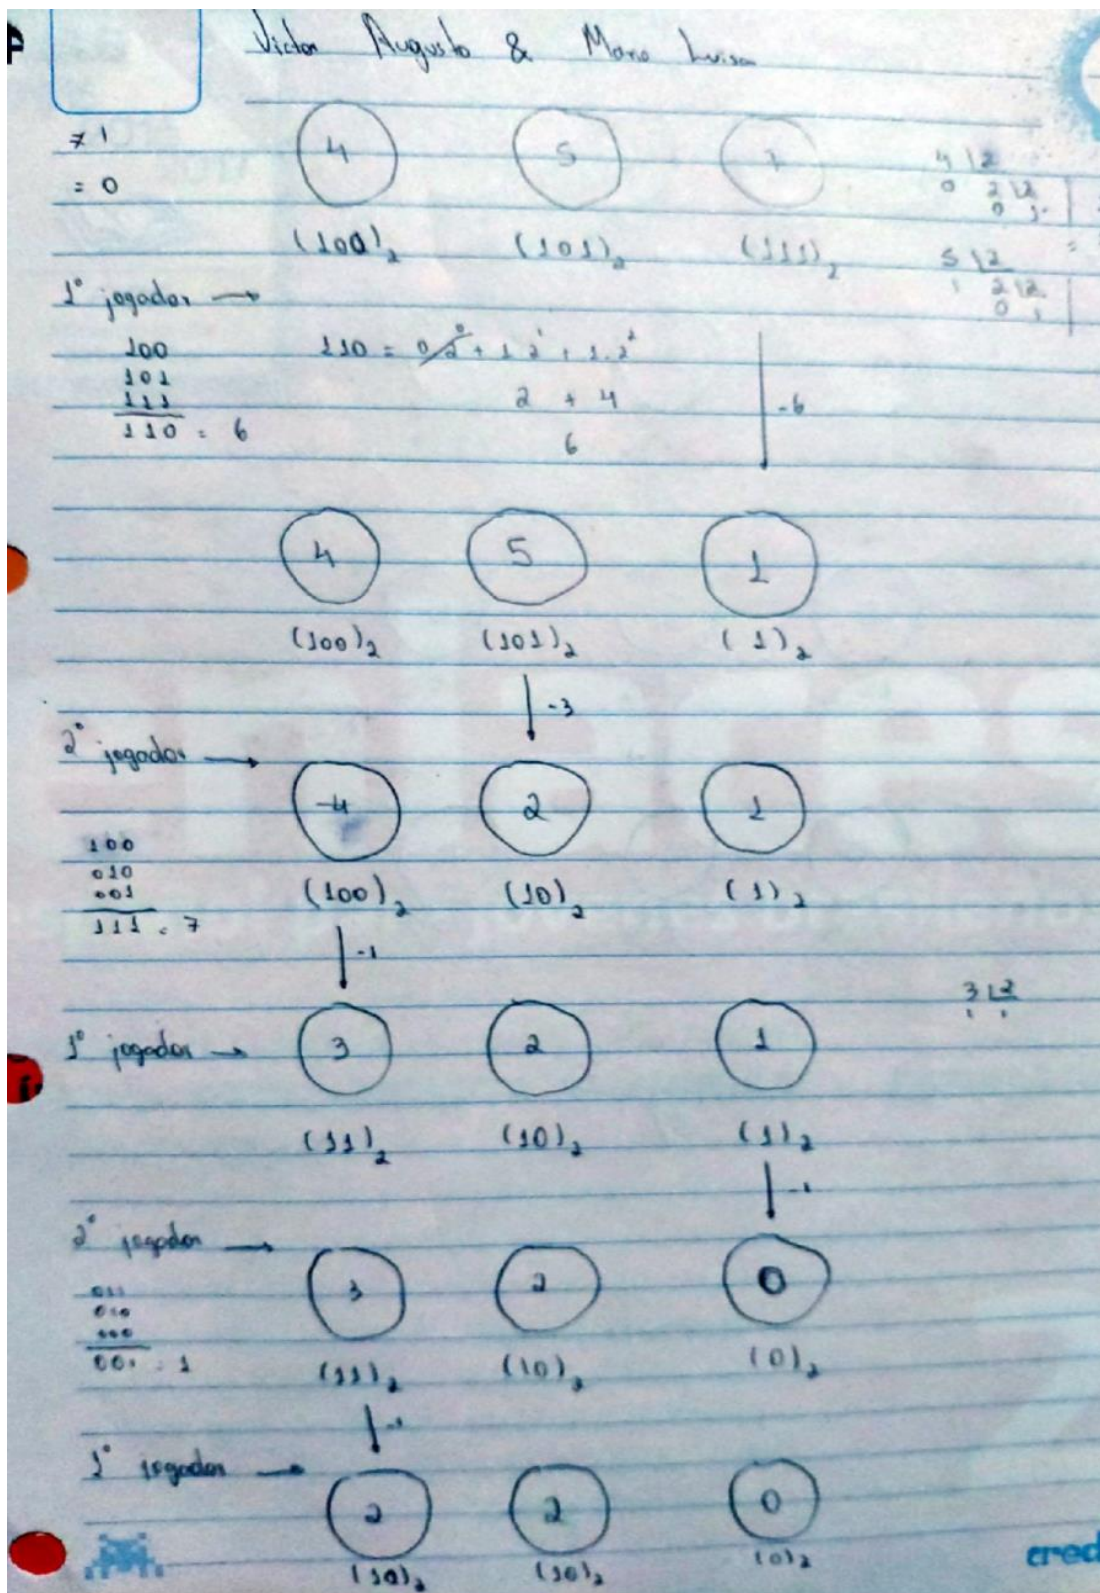 Victor Augusto & Maria Luisa
≠ 1
= 0
4 5 7
4 | 2
0 2 | 2
0 1
(100)₂ (101)₂ (111)₂
5 | 2
1 2 | 2
0 1
1º jogador →
100
101
111
110 = 6
110 = 0 2⁰ + 1 2¹ + 1.2²
2 + 4
6
-6
4 5 1
(100)₂ (101)₂ (1)₂
-3
2º jogador →
4 2 1
100
010
001
111 = 7
(100)₂ (10)₂ (1)₂
-1
3 | 2
1 1
1º jogador →
3 2 1
(11)₂ (10)₂ (1)₂
-1
2º jogador →
3 2 0
011
010
000
001 = 1
(11)₂ (10)₂ (0)₂
-1
1º jogador →
2 2 0
(10)₂ (10)₂ (0)₂
cred